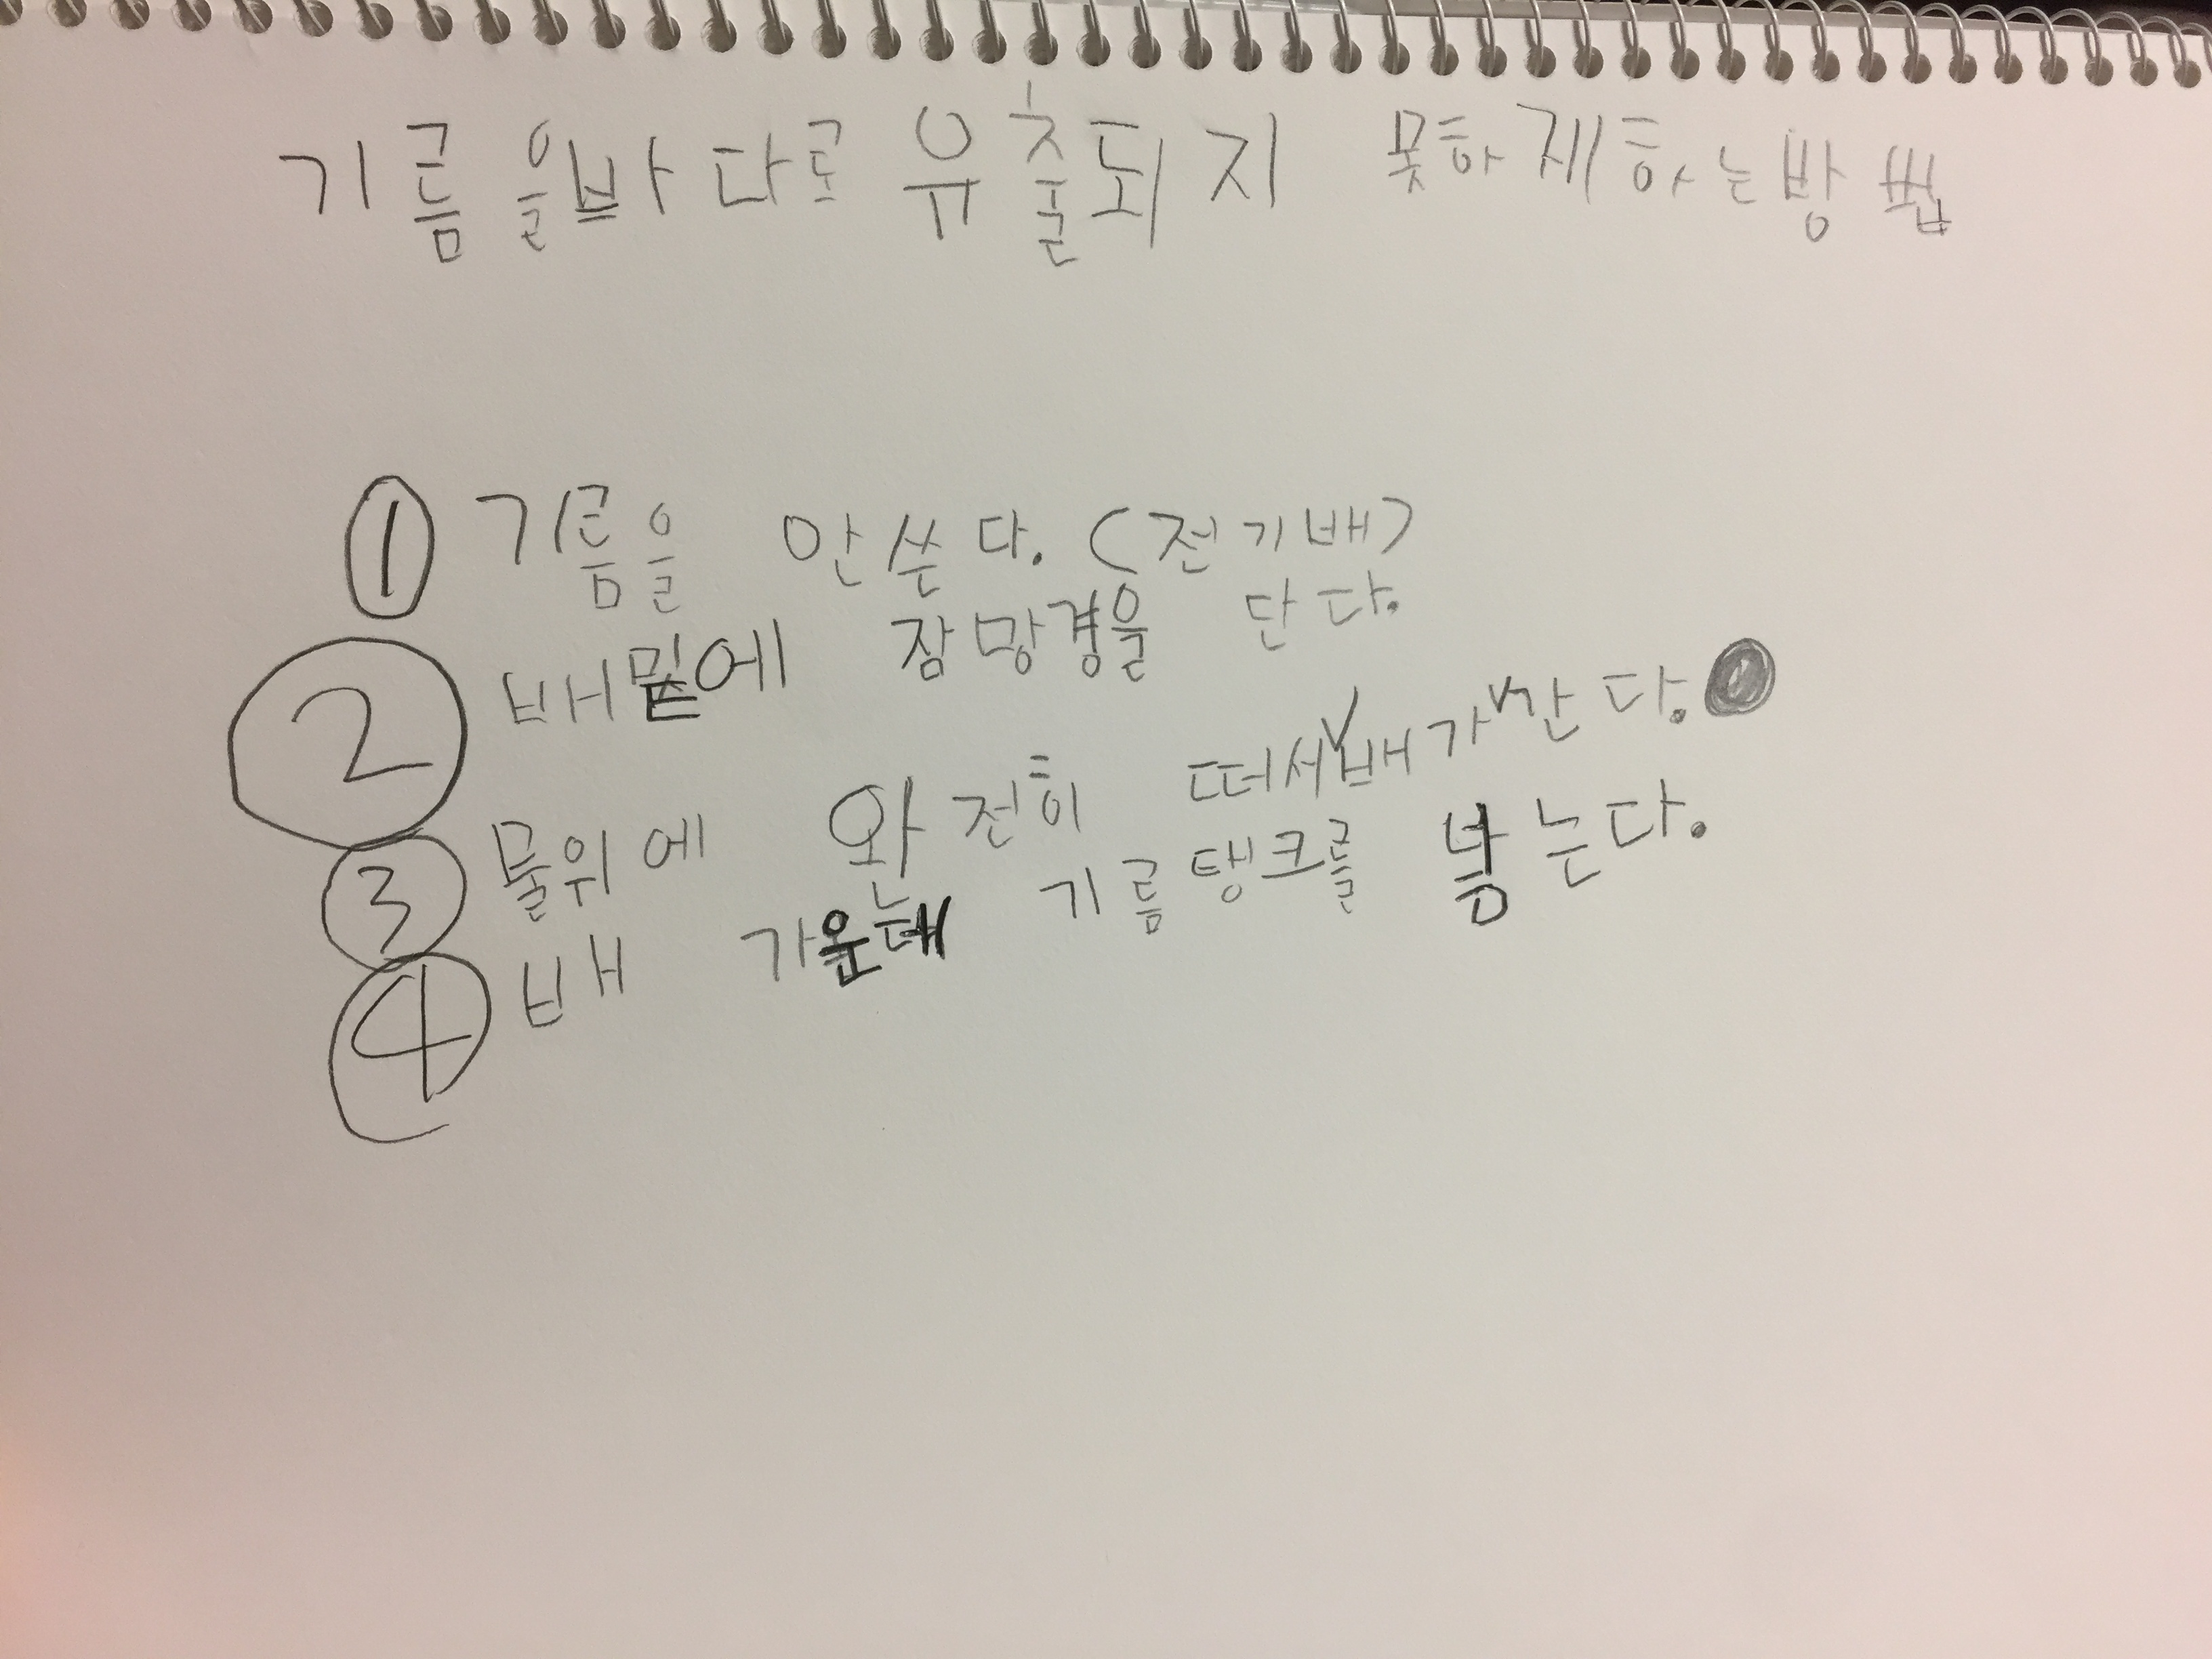 기름을 바다로 유출되지 못하게하는방법
① 기름을 안쓴다. (전기배)
② 배밑에 잠망경을 단다.
③ 물위에 완전히 떠서 배가 간다.
④ 배 가운데 기름탱크를 넣는다.